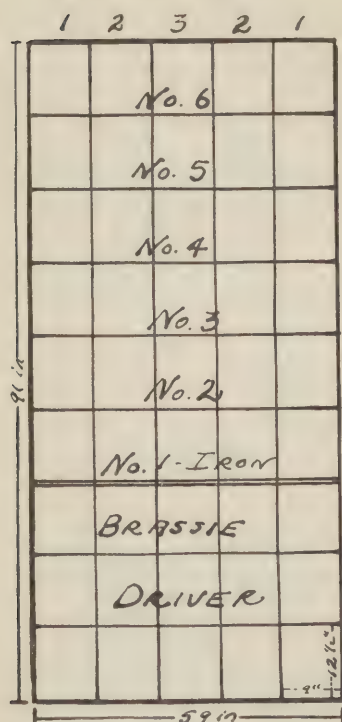 1 2 3 2 1
No. 6
No. 5
No. 4
No. 3
No. 2
No. 1-IRON
BRASSIE
DRIVER
91 in
12½"
9"
59 in